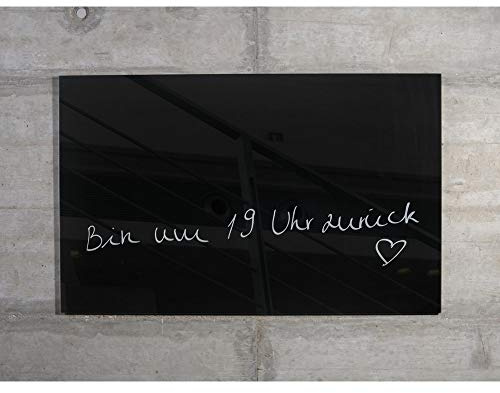 Bin um 19 Uhr zurück